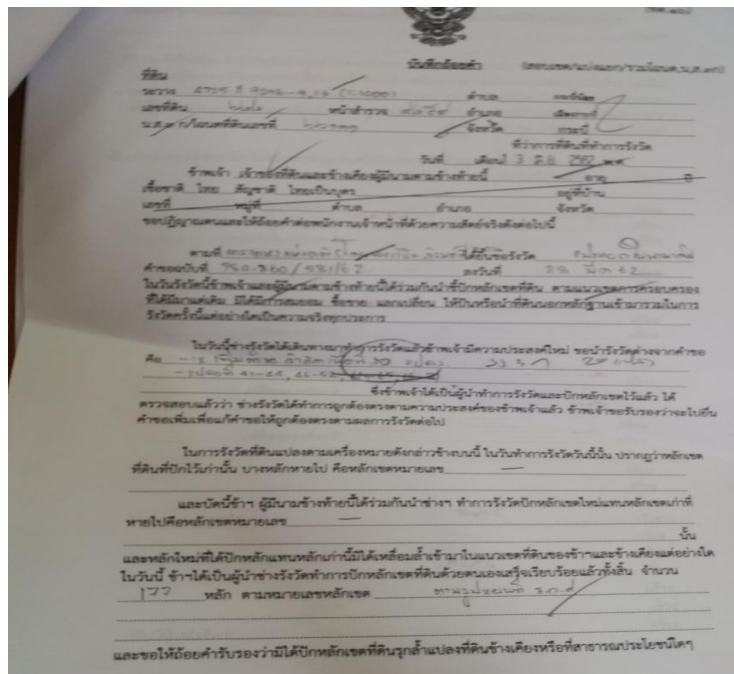 บันทึกถ้อยคำ (สอบเขต/แบ่งแยก/รวมโฉนด,น.ส.๓ก)
ที่ดิน
ระวาง 4725 ตำบล
เลขที่ดิน หน้าสำรวจ อำเภอ
น.ส.๓ก/โฉนดที่ดินเลขที่ จังหวัด กระบี่
ที่ว่าการที่ดินที่ทำการรังวัด
วันที่ เดือน 3 มิ.ย. 2562 พ.ศ.
ข้าพเจ้า เจ้าของที่ดินและข้างเคียงผู้มีนามตามข้างท้ายนี้ อายุ ปี
เชื้อชาติ ไทย สัญชาติ ไทยเป็นบุตร อยู่ที่บ้าน
เลขที่ หมู่ที่ ตำบล อำเภอ จังหวัด
ขอปฏิญาณตนและให้ถ้อยคำต่อพนักงานเจ้าหน้าที่ด้วยความสัตย์จริงดังต่อไปนี้
ตามที่ ได้ยื่นขอรังวัด
คำขอฉบับที่ 580-560/581/62 ลงวันที่ 28 มี.ค. 62
ในวันรังวัดนี้ข้าพเจ้าและผู้มีนามตามข้างท้ายนี้ได้ร่วมกันนำชี้ปักหลักเขตที่ดิน ตามแนวเขตการครอบครอง
ที่ได้มีมาแต่เดิม มิได้มีการสมยอม ซื้อขาย แลกเปลี่ยน ให้ปันหรือนำที่ดินนอกหลักฐานเข้ามารวมในการ
รังวัดครั้งนี้แต่อย่างใดเป็นความจริงทุกประการ
ในวันนี้ช่างรังวัดได้เดินทางมาทำการรังวัดแล้วข้าพเจ้ามีความประสงค์ใหม่ ขอนำรังวัดต่างจากคำขอ
คือ
41-44, 46-52,
ซึ่งข้าพเจ้าได้เป็นผู้นำทำการรังวัดและปักหลักเขตไว้แล้ว ได้
ตรวจสอบแล้วว่า ช่างรังวัดได้ทำการถูกต้องตรงตามความประสงค์ของข้าพเจ้าแล้ว ข้าพเจ้าขอรับรองว่าจะไปยื่น
คำขอเพิ่มเพื่อแก้คำขอให้ถูกต้องตรงตามผลการรังวัดต่อไป
ในการรังวัดที่ดินแปลงตามเครื่องหมายดังกล่าวข้างบนนี้ ในวันทำการรังวัดวันนี้นั้น ปรากฏว่าหลักเขต
ที่ดินที่ปักไว้เก่านั้น บางหลักหายไป คือหลักเขตหมายเลข —
และบัดนี้ข้าฯ ผู้มีนามข้างท้ายนี้ได้ร่วมกันนำช่างฯ ทำการรังวัดปักหลักเขตใหม่แทนหลักเขตเก่าที่
หายไปคือหลักเขตหมายเลข —
นั้น
และหลักใหม่ที่ได้ปักหลักแทนหลักเก่านี้มิได้เหลื่อมล้ำเข้ามาในแนวเขตที่ดินของข้าฯและข้างเคียงแต่อย่างใด
ในวันนี้ ข้าฯได้เป็นผู้นำช่างรังวัดทำการปักหลักเขตที่ดินด้วยตนเองเสร็จเรียบร้อยแล้วทั้งสิ้น จำนวน
177 หลัก ตามหมายเลขหลักเขต
และขอให้ถ้อยคำรับรองว่ามิได้ปักหลักเขตที่ดินรุกล้ำแปลงที่ดินข้างเคียงหรือที่สาธารณประโยชน์ใดๆ